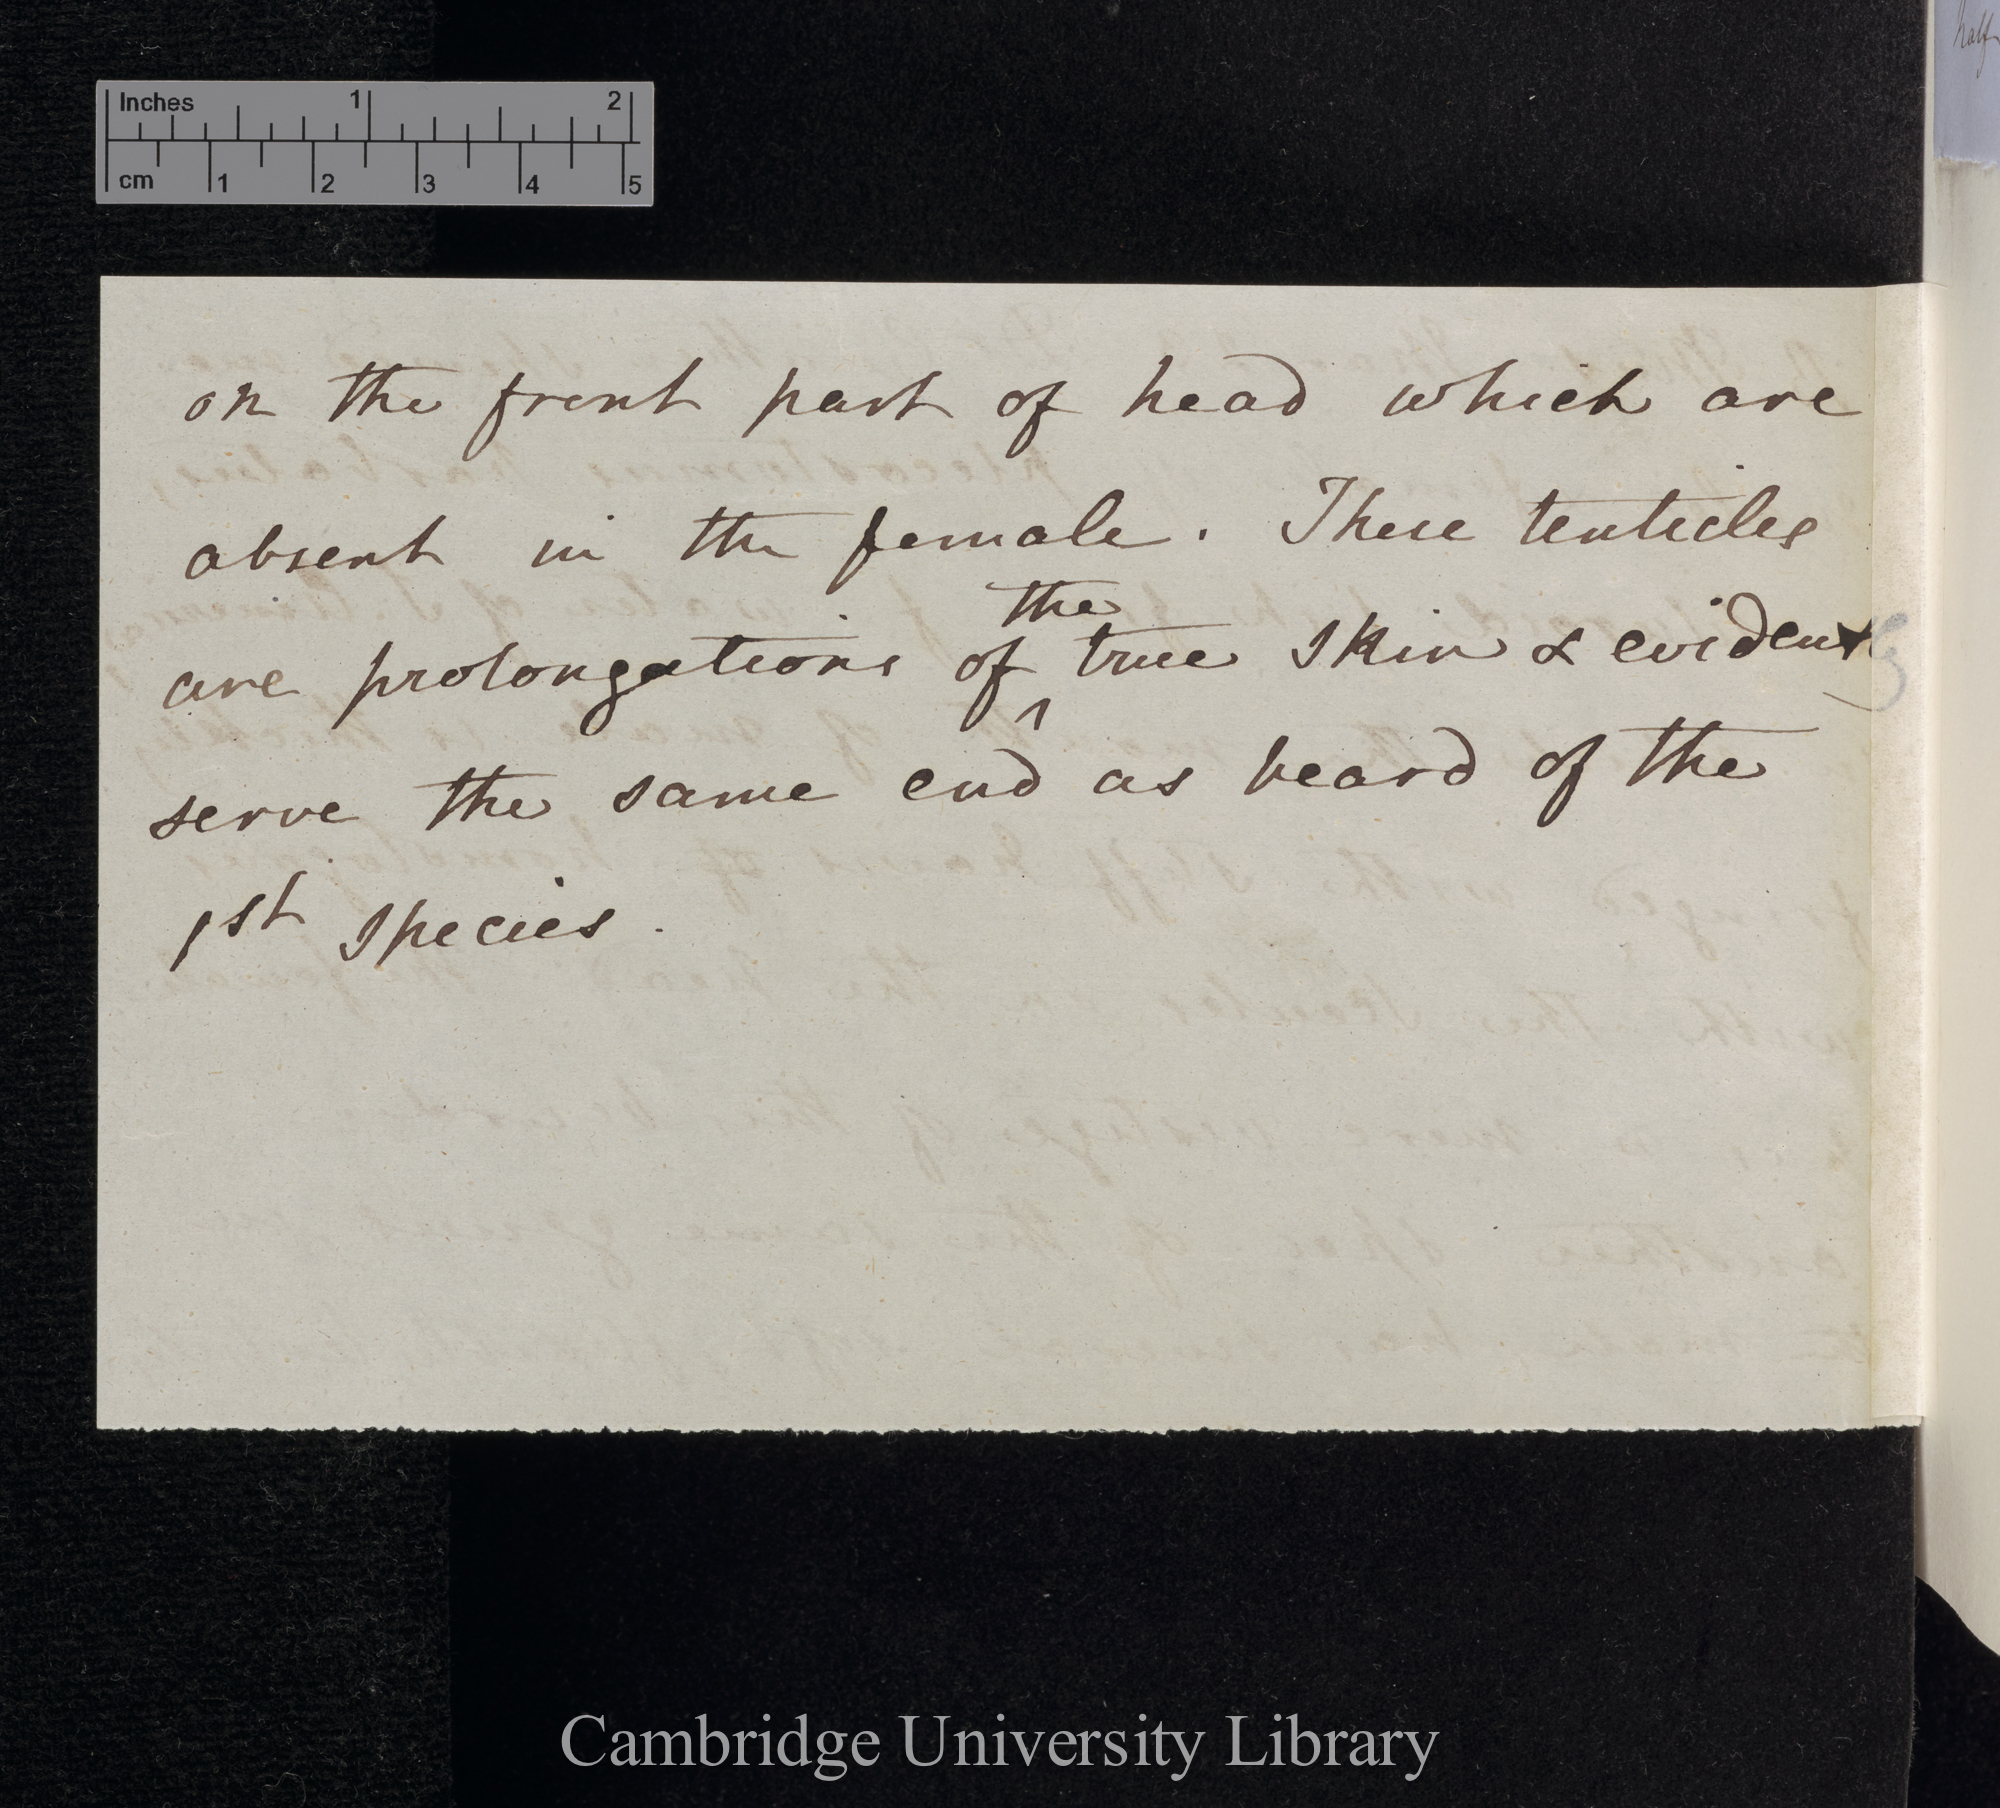 Inches 1 2
cm 1 2 3 4 5
half
on the front part of head which are
absent in the female. These tenticles
are prolongations of the true skin & evidently
serve the same end as beard of the
1st species.
Cambridge University Library